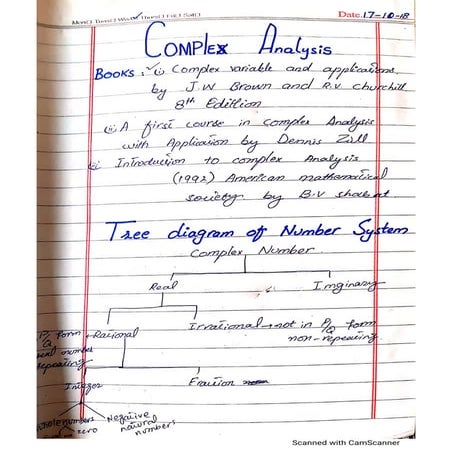 Mon☐ Tues☐ Wed☑ Thurs☐ Fri☐ Sat☐
Date. 17-10-18
COMPLEX Analysis
BOOKS: (i) Complex variable and applications
by J.W Brown and R.V churchill
8th Edition
(ii) A first course in Complex Analysis
with Application by Dennis Zill
Introduction to complex Analysis
(1992) American mathematical
society by B.V shabat
Tree diagram of Number System
Complex Number
Real Imginary
P/Q form Rational Irrational → not in P/Q form
non-repeating
real number
repeating
Integer Fraction
whole numbers zero Negative
natural
numbers
Scanned with CamScanner